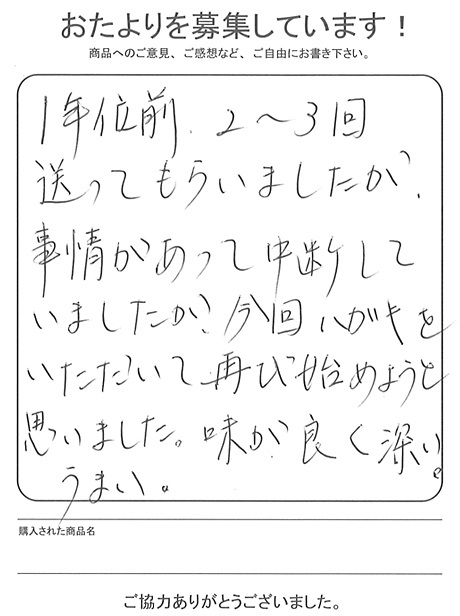 おたよりを募集しています！
商品へのご意見、ご感想など、ご自由にお書き下さい。
1年位前、2～3回
送ってもらいましたが、
事情があって中断して
いましたが、今回ハガキを
いただいて再び始めようと
思いました。味が良く深い。
うまい。
購入された商品名
ご協力ありがとうございました。